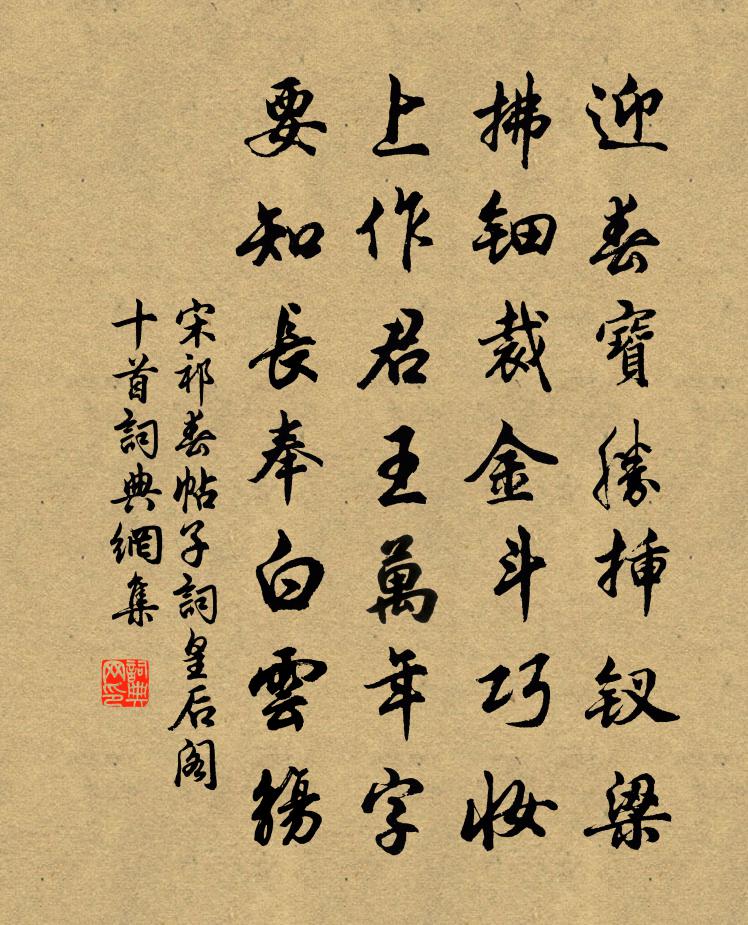 迎春寶勝插釵梁
拂鈿裁金斗巧妝
上作君王萬年字
要知長奉白雲觴
宋祁春帖子詞皇后閣
十首詞典網集
詞典网印